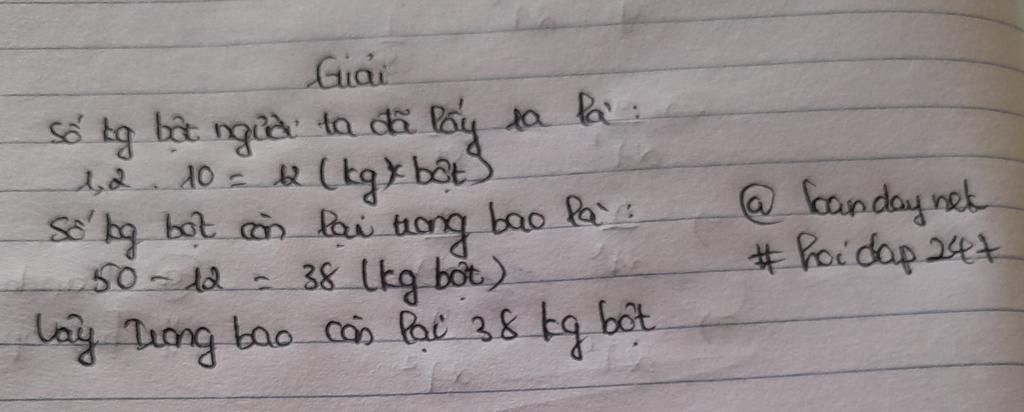 Giải
Số kg bột người ta đã lấy ra là:
1,2 . 10 = 12 (kg bột)
Số kg bột còn lại trong bao là:
50 - 12 = 38 (kg bột)
Vậy trong bao còn lại 38 kg bột
@ bandaynet
# hoidap247